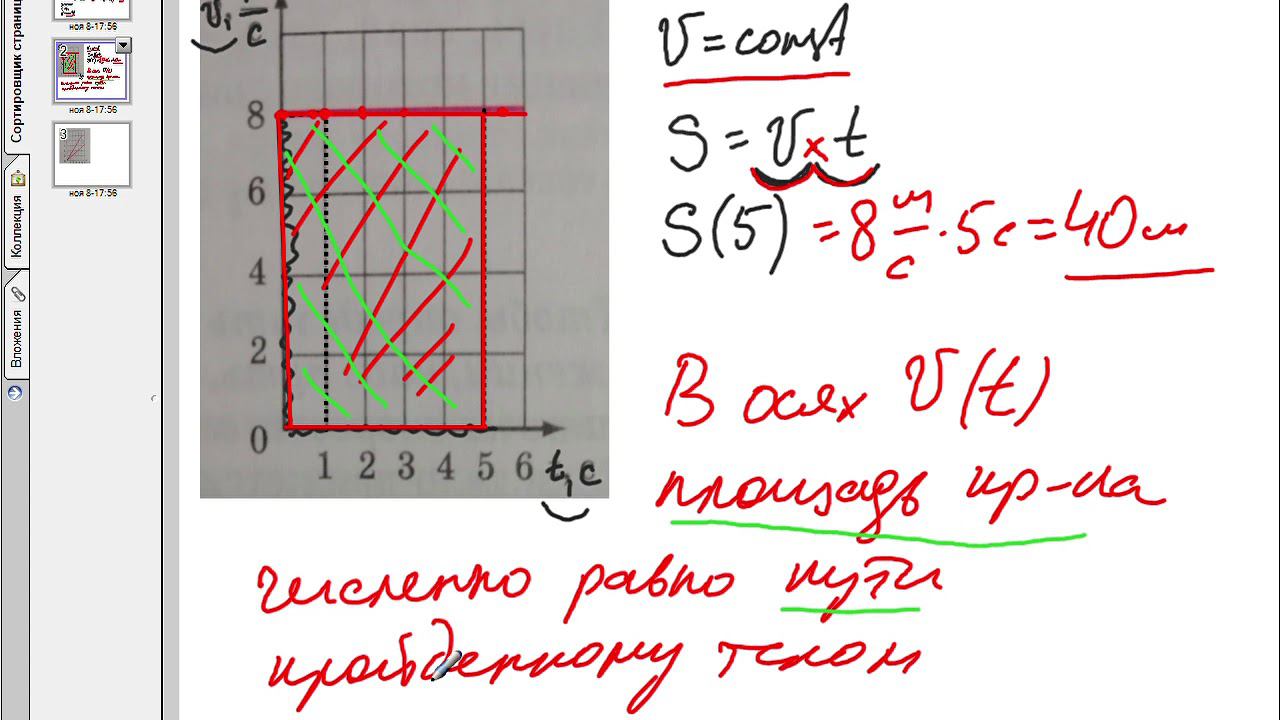 Сортировщик страниц
Коллекция
Вложения
ноя 8-17:56
2
ноя 8-17:56
3
ноя 8-17:56
с
8
6
4
2
0
1 2 3 4 5 6 t, c
V = const
S = V × t
S(5) = 8 м/с · 5с = 40м
В осях V(t)
площадь пр-ка
численно равно пути
пройденному телом